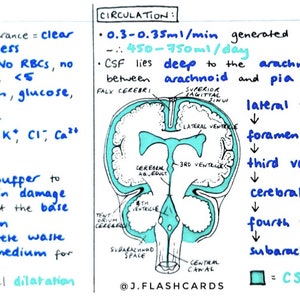 rance = clear
ess
No RBCs, no
<5
n, glucose,
K⁺, Cl⁻, Ca²⁺
buffer to
in damage
t the base
n
ete waste
medium for
l dilatation
CIRCULATION:
• 0.3-0.35ml/min generated
∴ 450-750ml/day
• CSF lies deep to the arachn
between arachnoid and pia
FALX CEREBRI
SUPERIOR
SAGITTAL
SINUS
LATERAL VENTRICLE
3RD VENTRICLE
CEREBRAL
AQUEDUCT
4TH
VENTRICLE
TENTORIUM
CEREBELLI
SUBARACHNOID
SPACE
CENTRAL
CANAL
lateral
foramen
third v
cerebral
fourth
subarac
= CS
@J.FLASHCARDS